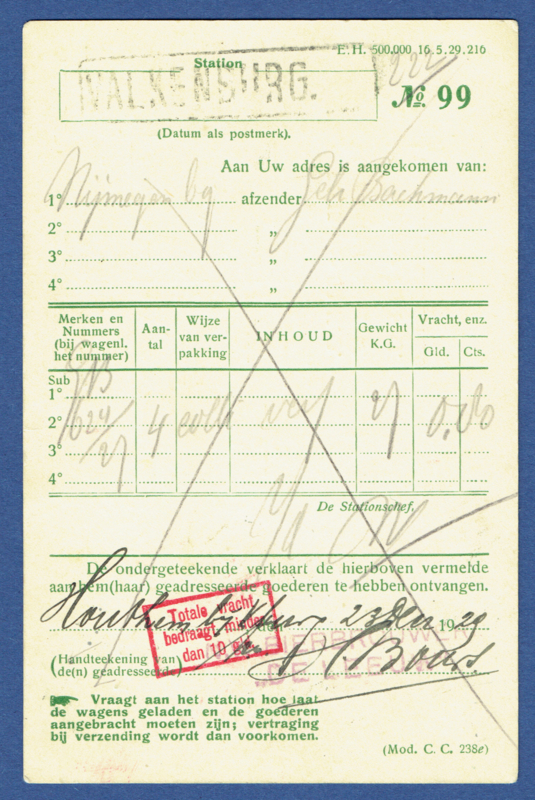 E. H. 500.000 16.5.29.216
Station
VALKENBURG.
222
No 99
(Datum als postmerk).
Aan Uw adres is aangekomen van:
1° Nijmegen afzender Gebr Bachmann
2° „
3° „
4° „
Merken en Nummers (bij wagenl. het nummer)
Aan-tal
Wijze van ver-pakking
INHOUD
Gewicht K.G.
Vracht, enz.
Gld. Cts.
Sub
1°
2° 4 colli 0.
3°
4°
De Stationschef,
De ondergeteekende verklaart de hierboven vermelde
aan hem (haar) geadresseerde goederen te hebben ontvangen.
Houthem 23 Dec 1929
Totale vracht
bedraagt minder
dan 10 gld.
BIERBROUWERIJ
"DE LEEUW"
(Handteekening van
de(n) geadresseerde)
Vraagt aan het station hoe laat
de wagens geladen en de goederen
aangebracht moeten zijn; vertraging
bij verzending wordt dan voorkomen.
(Mod. C. C. 238e)